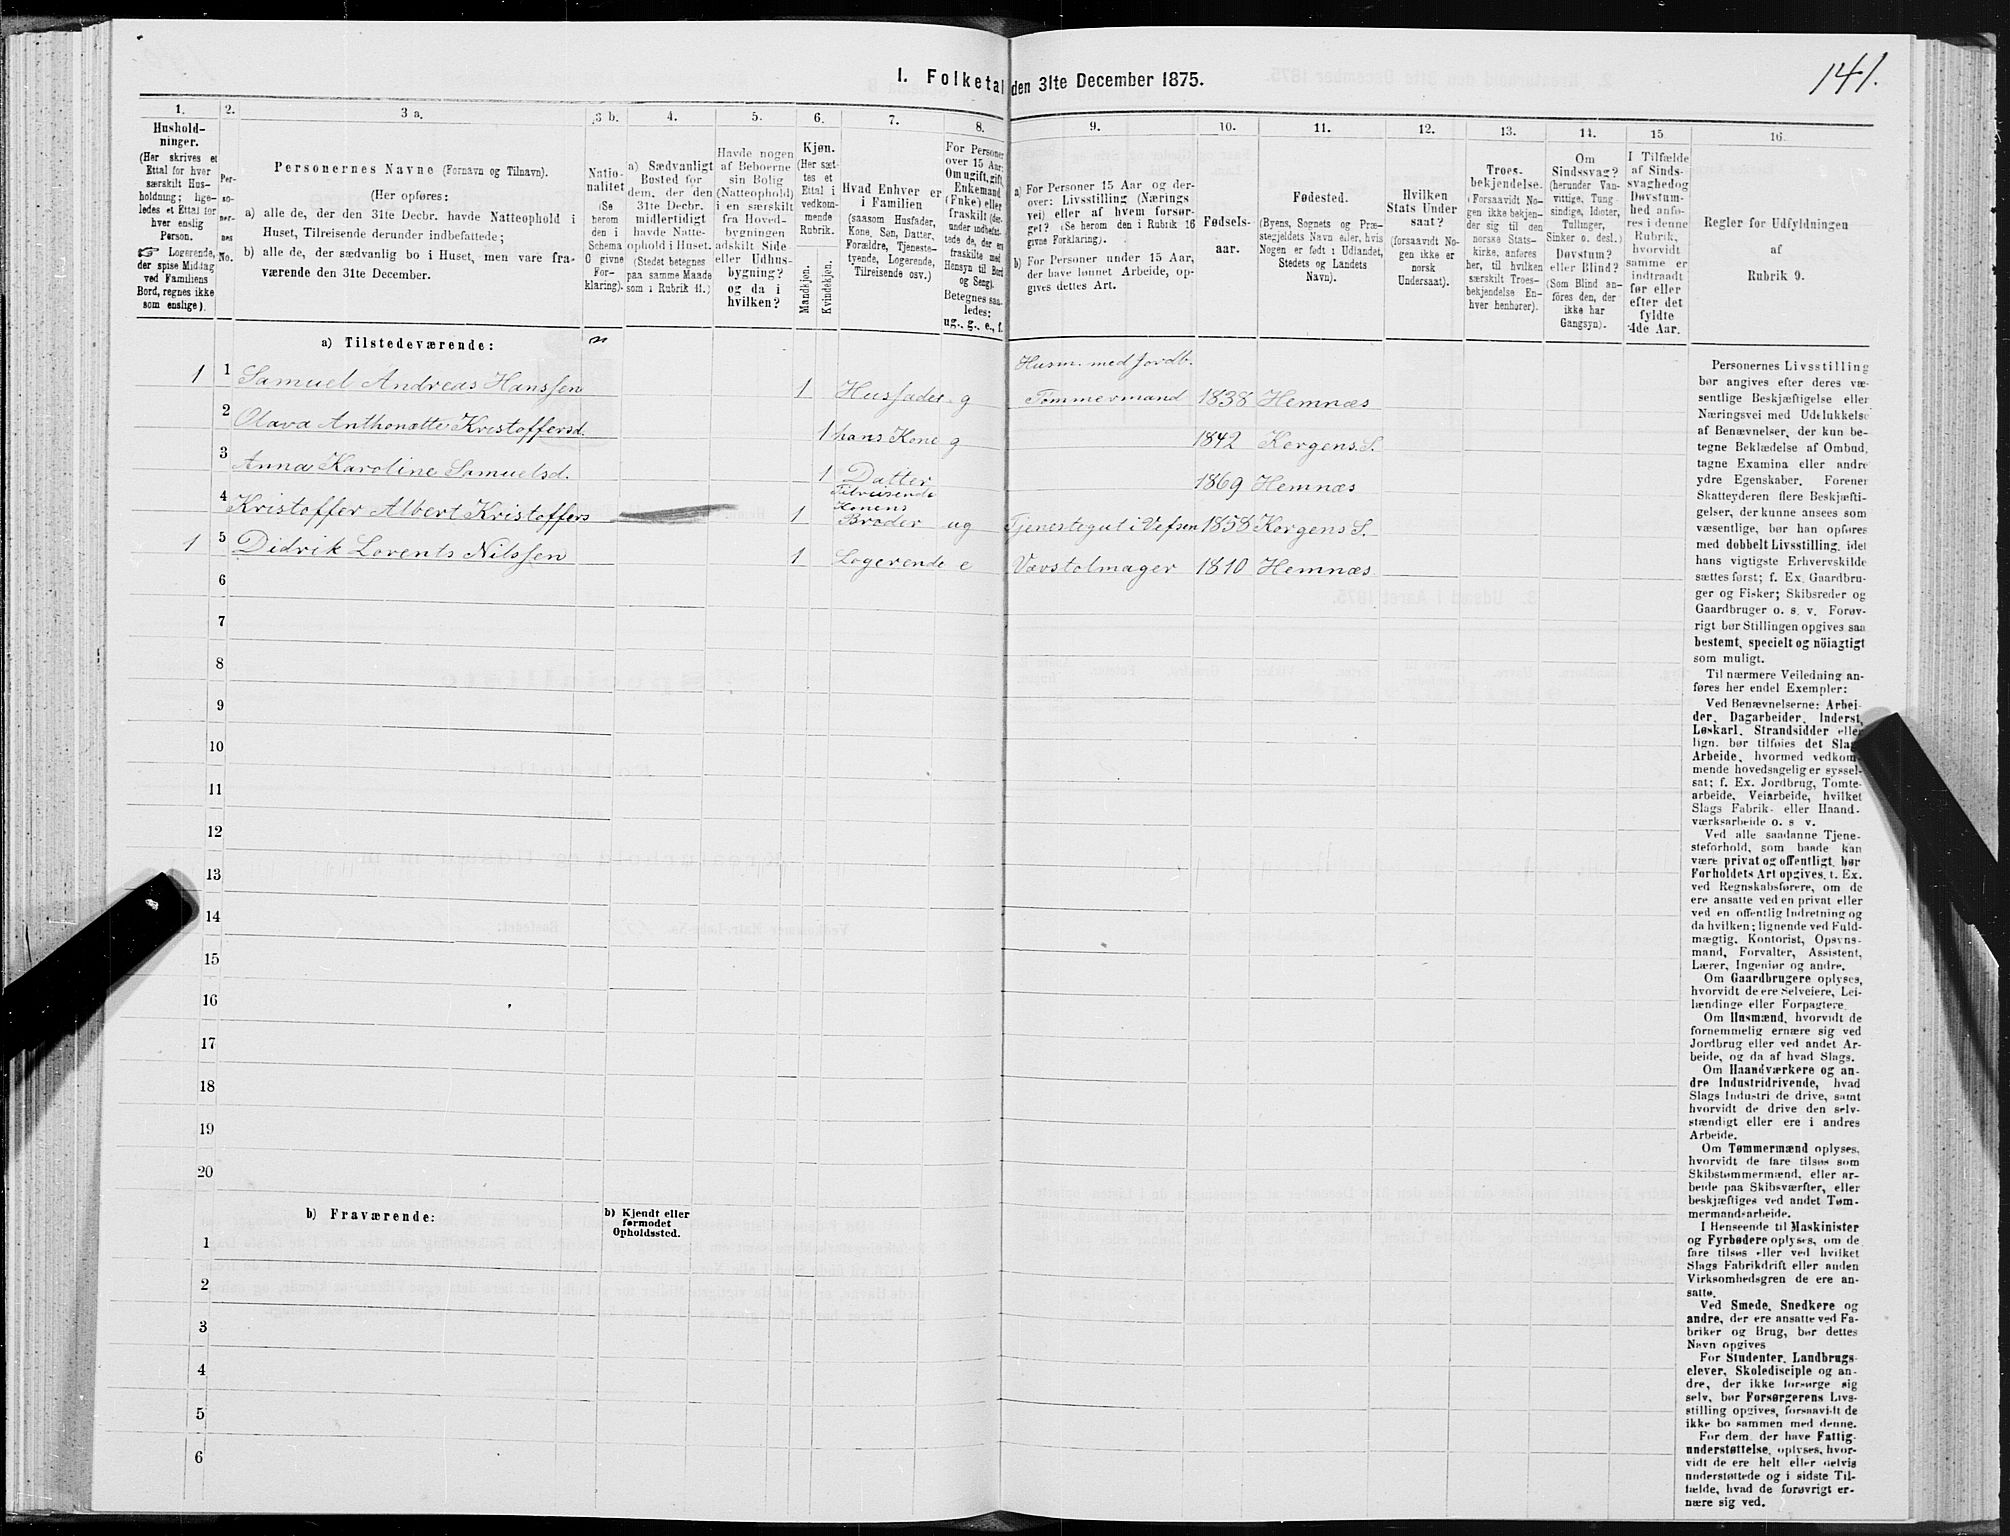 141.
1. Folketal den 31te December 1875.
1.
Hushold-
ninger.
(Her skrives et
Ettal for hver
særskilt Hus-
holdning; lige-
ledes et Ettal for
hver enslig
Person.
☞ Logerende,
der spise Middag
ved Familiens
Bord, regnes ikke
som enslige).
2.
Per-
so-
ner-
nes
No.
3 a.
Personernes Navne (Fornavn og Tilnavn).
(Her opføres:
a) alle de, der den 31te Decbr. havde Natteophold i
Huset, Tilreisende derunder indbefattede;
b) alle de, der sædvanlig bo i Huset, men vare fra-
værende den 31te December.
3 b.
Natio-
nalitet
(Se
herom
den i
Schema
O givne
For-
klaring).
4.
a) Sædvanligt
Bosted for
dem, der den
31te Decbr.
midlertidigt
havde Natte-
ophold i Huset.
(Stedet betegnes
paa samme Maade
som i Rubrik 11.)
5.
Havde nogen
af Beboerne
sin Bolig
(Natteophold)
i en særskilt
fra Hoved-
bygningen
adskilt Side
eller Udhus-
bygning?
og da i
hvilken?
6.
Kjøn.
(Her sæt-
tes et
Ettal i
vedkom-
mende
Rubrik.
Mandkjøn.
Kvindekjøn.
7.
Hvad Enhver er
i Familien
(saasom Husfader,
Kone, Søn, Datter,
Forældre, Tjeneste-
tyende, Logerende,
Tilreisende osv.)
8.
For Personer
over 15 Aar:
Om ugift, gift,
Enkemand
(Enke) eller
fraskilt (der-
under indbefat-
tede de, der ere
fraskilte med
Hensyn til Bord
og Seng).
Betegnes saa-
ledes:
ug., g., e., f.
9.
a) For Personer 15 Aar og der-
over: Livsstilling (Nærings
vei) eller af hvem forsør-
get? (Se herom den i Rubrik 16
givne Forklaring).
b) For Personer under 15 Aar,
der have lønnet Arbeide, op-
gives dettes Art.
10.
Fødsels-
aar.
11.
Fødested.
(Byens, Sognets og Præ-
stegjeldets Navn eller, hvis
Nogen er født i Udlandet,
Stedets og Landets
Navn).
12.
Hvilken
Stats Under
saat?
(forsaavidt No-
gen ikke er
norsk
Undersaat).
13.
Troes-
bekjendelse.
(Forsaavidt No-
gen ikke bekjen-
der sig til den
norske Stats-
kirke, anføres
her, til hvilken
særskilt Troes-
bekjendelse En-
hver henhører).
14.
Om
Sindssvag?
(herunder Van-
vittige, Tung-
sindige, Idioter,
Tullinger,
Sinker o. desl.)
Døvstum?
eller Blind?
(Som Blind an-
føres den, der
ikke har
Gangsyn).
15
I Tilfælde
af Sinds-
svaghedog
Døvstum-
hed anfø-
res i denne
Rubrik,
hvorvidt
samme er
indtraadt
før eller
efter det
fyldte
4de Aar.
16.
Regler for Udfyldningen
af
Rubrik 9.
a) Tilstedeværende: n
Husm. med Jordb.
1 1 Samuel Andreas Hanssen 1 Husfader g Tømmermand 1838 Hemnæs
2 Olava Anthonette Kristoffersd. 1 hans Kone g 1842 Korgens S.
3 Anna Karoline Samuelsd. 1 Datter 1869 Hemnæs
Tilreisende
Konens
4 Kristoffer Albert Kristoffers 1 Broder ug Tjenestegut i Vefsen 1858 Korgens S.
1 5 Didrik Lorents Nilssen 1 Logerende e Vævstolmager 1810 Hemnæs
6
7
8
9
10
11
12
13
14
15
16
17
18
19
20
b) Fraværende:
b) Kjendt eller
formodet
Opholdssted.
1
2
3
4
5
6
Personernes Livsstilling
bør angives efter deres væ-
sentlige Beskjæftigelse eller
Næringsvei med Udelukkelse
af Benævnelser, der kun be-
tegne Beklædelse af Ombud,
tagne Examina eller andre
ydre Egenskaber. Forener
Skatteyderen flere Beskjæfti-
gelser, der kunne ansees som
væsentlige, bør han opføres
med dobbelt Livsstilling, idet
hans vigtigste Erhvervskilde
sættes først; f. Ex. Gaardbru-
ger og Fisker; Skibsreder og
Gaardbruger o. s. v. Forøv-
rigt bør Stillingen opgives saa
bestemt, specielt og nöiagtigt
som muligt.
Til nærmere Veiledning an-
føres her endel Exempler:
Ved Benævnelserne: Arbei-
der, Dagarbeider, Inderst,
Løskarl, Strandsidder eller
lign. bør tilføies det Slags
Arbeide, hvormed vedkom-
mende hovedsagelig er syssel-
sat; f. Ex. Jordbrug, Tomte-
arbeide, Veiarbeide, hvilket
Slags Fabrik- eller Haand-
værksarbeide o. s v.
Ved alle saadanne Tjene-
steforhold, som baade kan
være privat og offentligt, bør
Forholdets Art opgives, t. Ex.
ved Regnskabsførere, om de
ere ansatte ved en privat eller
ved en offentlig Indretning og
da hvilken; lignende ved Fuld-
mægtig, Kontorist, Opsyns-
mand, Forvalter, Assistent,
Lærer, Ingeniør og andre.
Om Gaardbrugere oplyses,
hvorvidt de ere Selveiere, Lei-
lændinge eller Forpagtere.
Om Husmænd, hvorvidt de
fornemmelig ernære sig ved
Jordbrug eller ved andet Ar-
beide, og da af hvad Slags.
Om Haandværkere og an-
dre Industridrivende, hvad
Slags Industri de drive, samt
hvorvidt de drive den selv-
stændigt eller ere i andres
Arbeide.
Om Tømmermænd oplyses,
hvorvidt de fare tilsøs som
Skibstømmermænd, eller ar-
beide paa Skibsværfter, eller
beskjæftiges ved andet Tøm-
mermandsarbeide.
I Henseende til Maskinister
og Fyrbødere oplyses, om de
fare tilsøs eller ved hvilket
Slags Fabrikdrift eller anden
Virksomhedsgren de ere an-
satte.
Ved Smede, Snedkere og
andre, der ere ansatte ved Fa-
briker og Brug, bør dettes
Navn opgives
For Studenter, Landbrugs-
elever, Skoledisciple og an-
dre, der ikke forsørge sig
selv, bør Forsørgerens Livs-
stilling opgives, forsaavidt de
ikke bo sammen med denne.
For dem, der have Fattig-
understøttelse, oplyses, hvor-
vidt de ere helt eller delvis
understøttede og i sidste Til-
fælde, hvad de forøvrigt er-
nære sig ved.